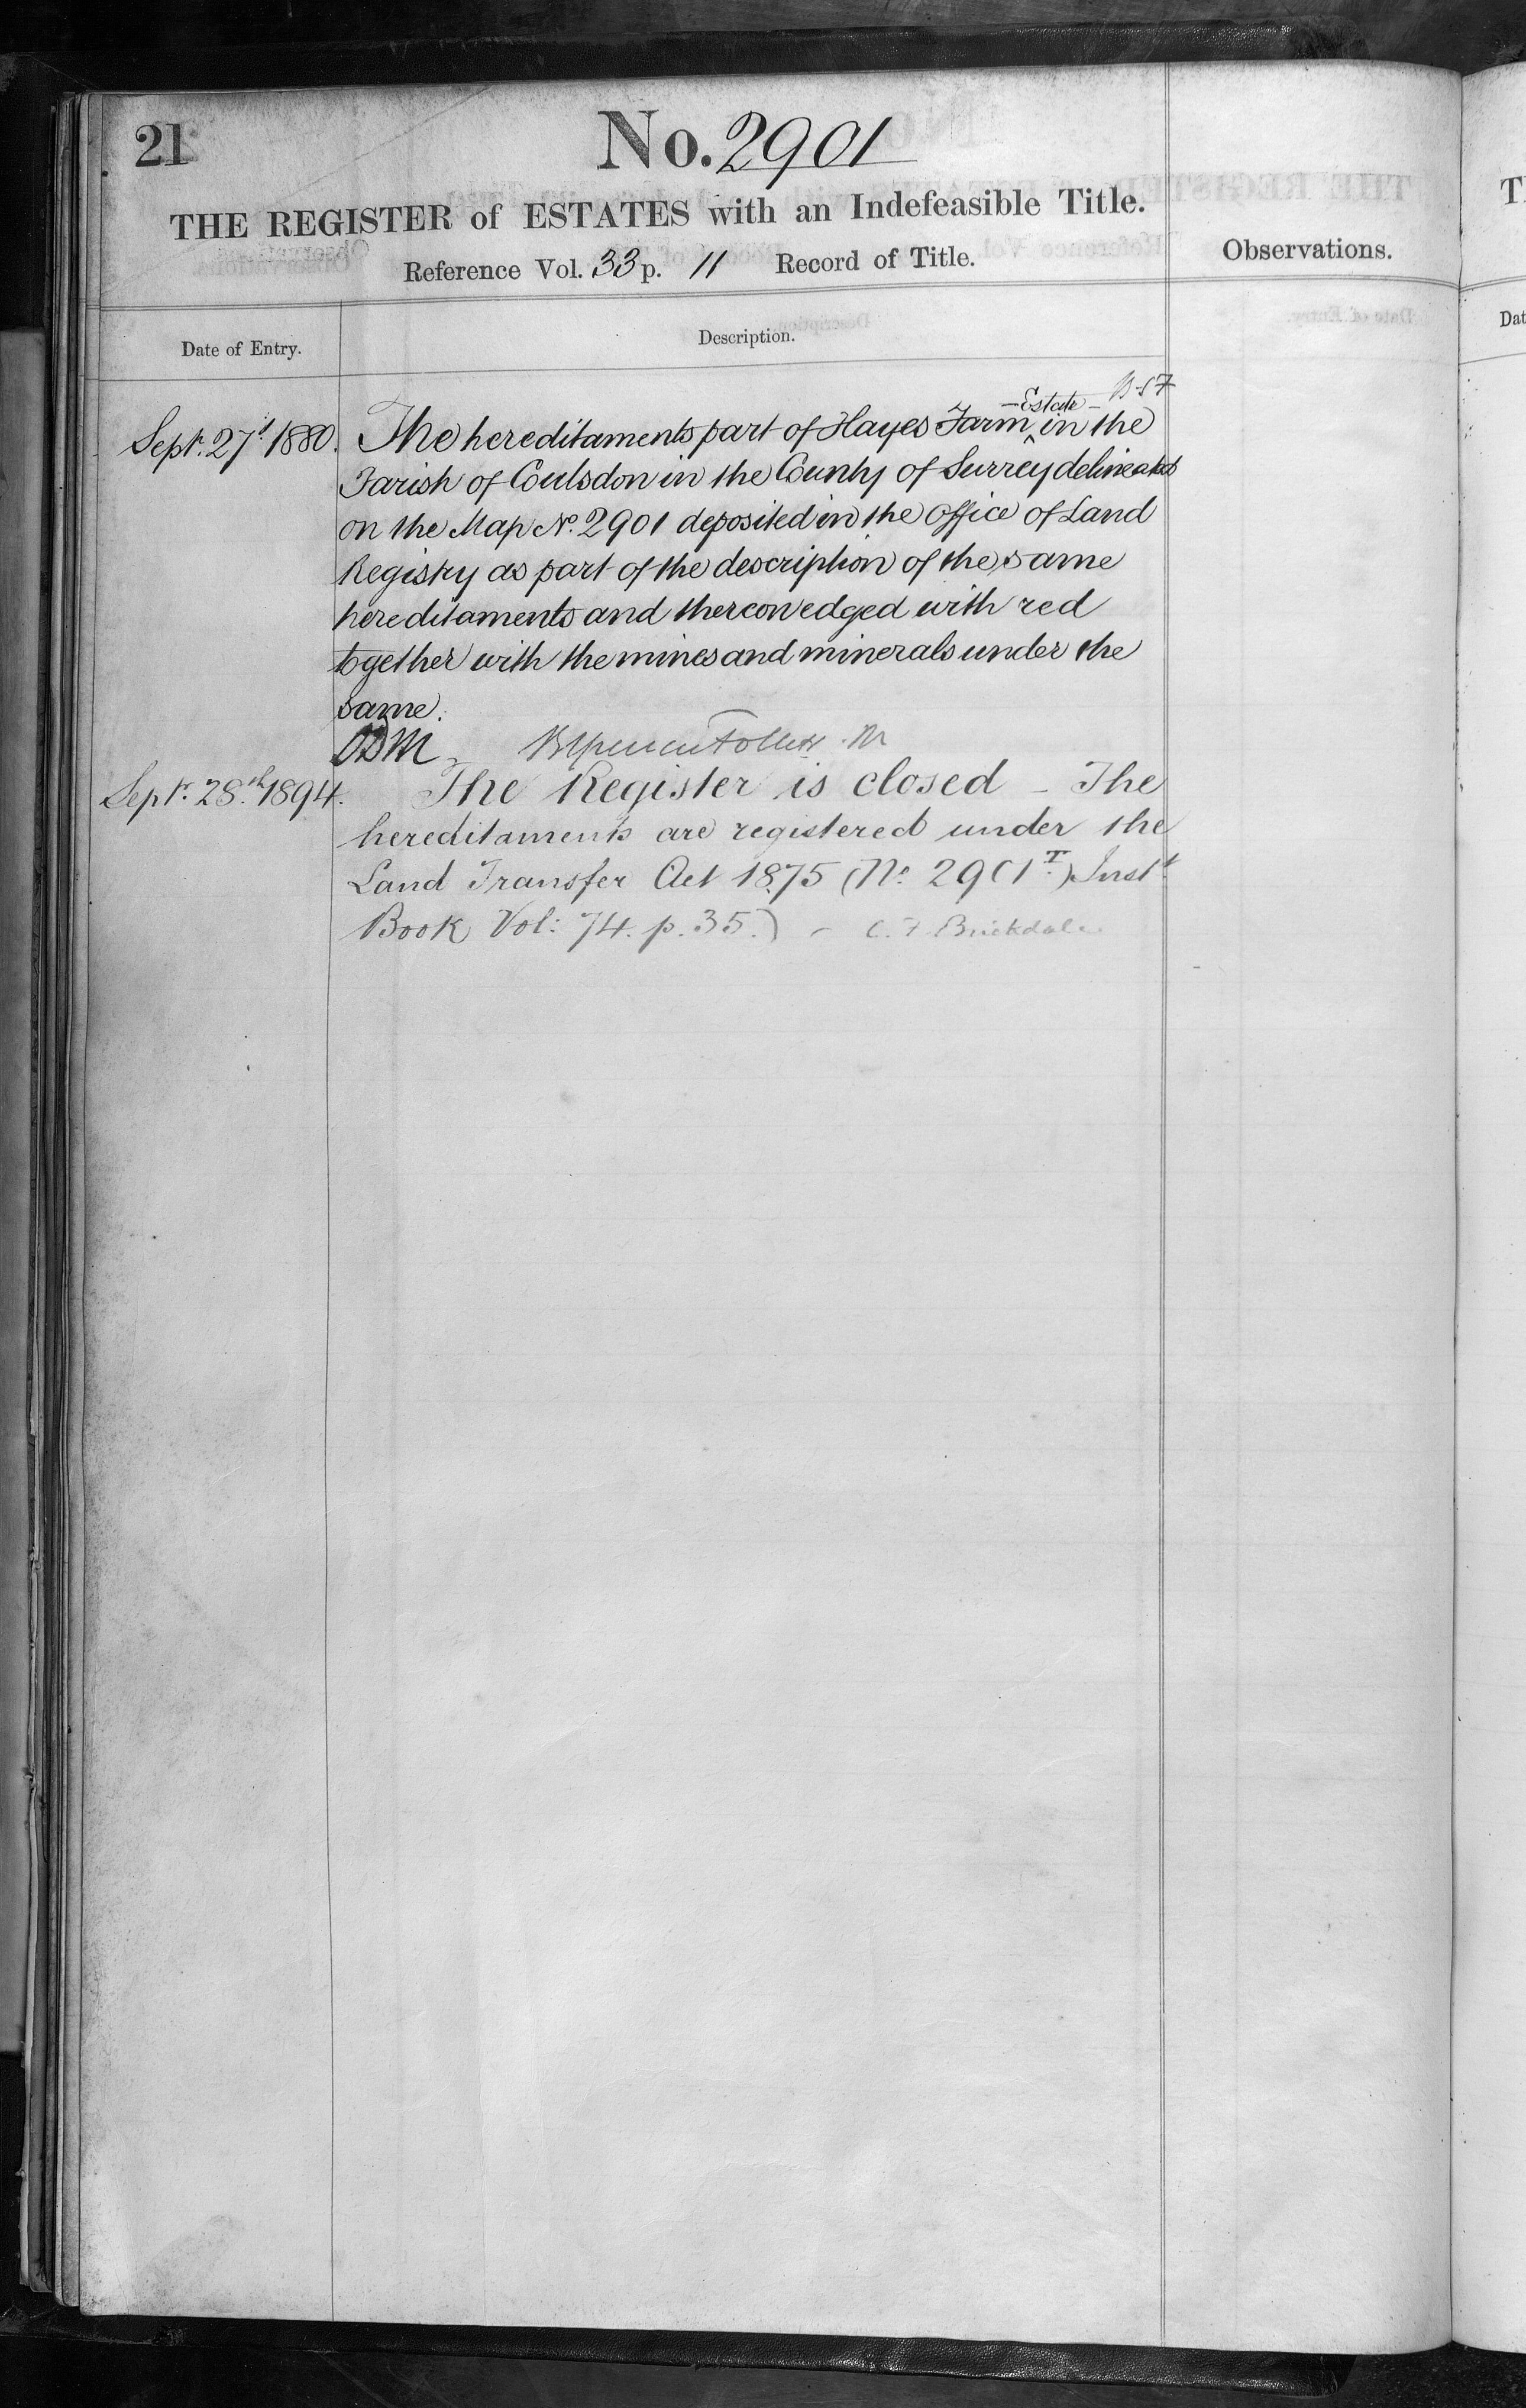 21
No. 2901
THE REGISTER of ESTATES with an Indefeasible Title.
Reference Vol. 33 p. 11 Record of Title.
Observations.
Date of Entry.
Description.
Sept. 27th 1880. The hereditaments part of Hayes Farm ^ -Estate- in the
Parish of Coulsdon in the County of Surrey delineated
on the Map No. 2901 deposited in the Office of Land
Registry as part of the description of the same
hereditaments and thereon edged with red
together with the mines and minerals under the
same.
Sept. 28th 1894. The Register is closed - The
hereditaments are registered under the
Land Transfer Act 1875 (No. 2901 T.) Inst.
Book Vol: 74. p. 35.) - C. F. Brickdale